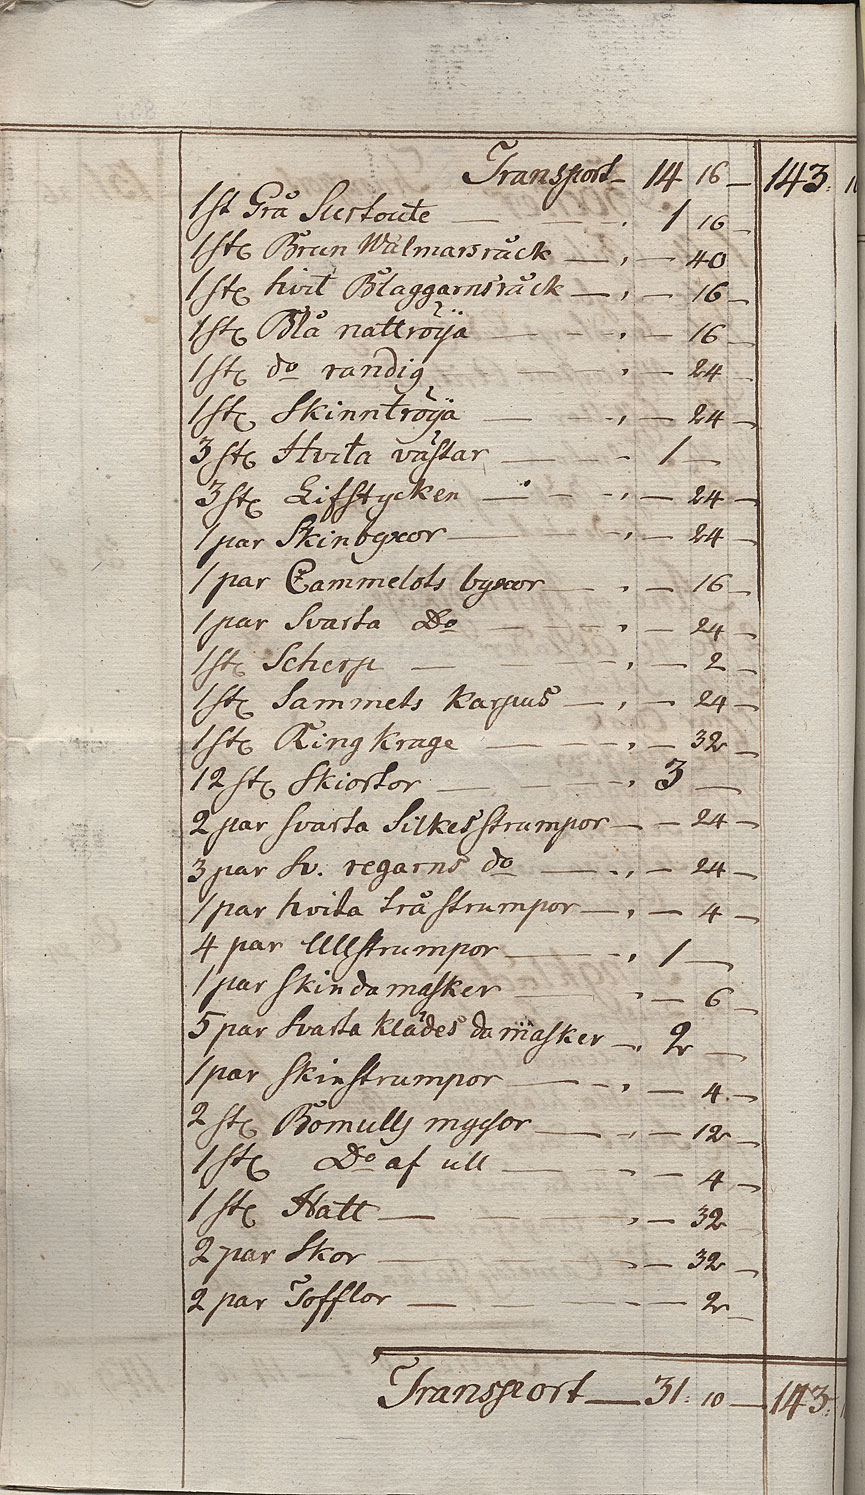 Transport 14 16 — 143: 1
1 st Grå Surtoute — 1 16 —
1 stc Brun Walmarsråck — — 40
1 stc hvit Blaggarnsråck — — 16 —
1 stc Blå nattröija — — 16 —
1 stc do randig — — 24 —
1 stc Skinntröija — — 24 —
3 stc Hvita västar — 1 —
3 stc Lifstycken — — 24 —
1 par Skinbyxor — — 24 —
1 par Cammelots byxor — — 16 —
1 par Svarta Do — — 24 —
1 stc Scherp — — 2 —
1 stc Sammets Karpus — — 24 —
1 stc Ringkrage — — 32 —
12 stc Skiortor — 3 —
2 par svarta Silkes strumpor — — 24 —
3 par Sv. regarns do — — 24 —
1 par hvita trå strumpor — — 4 —
4 par Ullstrumpor — 1 —
1 par skindamasker — — 6 —
5 par svarta klädes damasker — 2 —
1 par skinstrumpor — — 4 —
2 stc Bomulls myssor — — 12 —
1 stc Do af ull — — 4 —
1 stc Hatt — — 32 —
2 par Skor — — 32 —
2 par Tofflor — — 2 —
Transport — 31: 10 — 143: